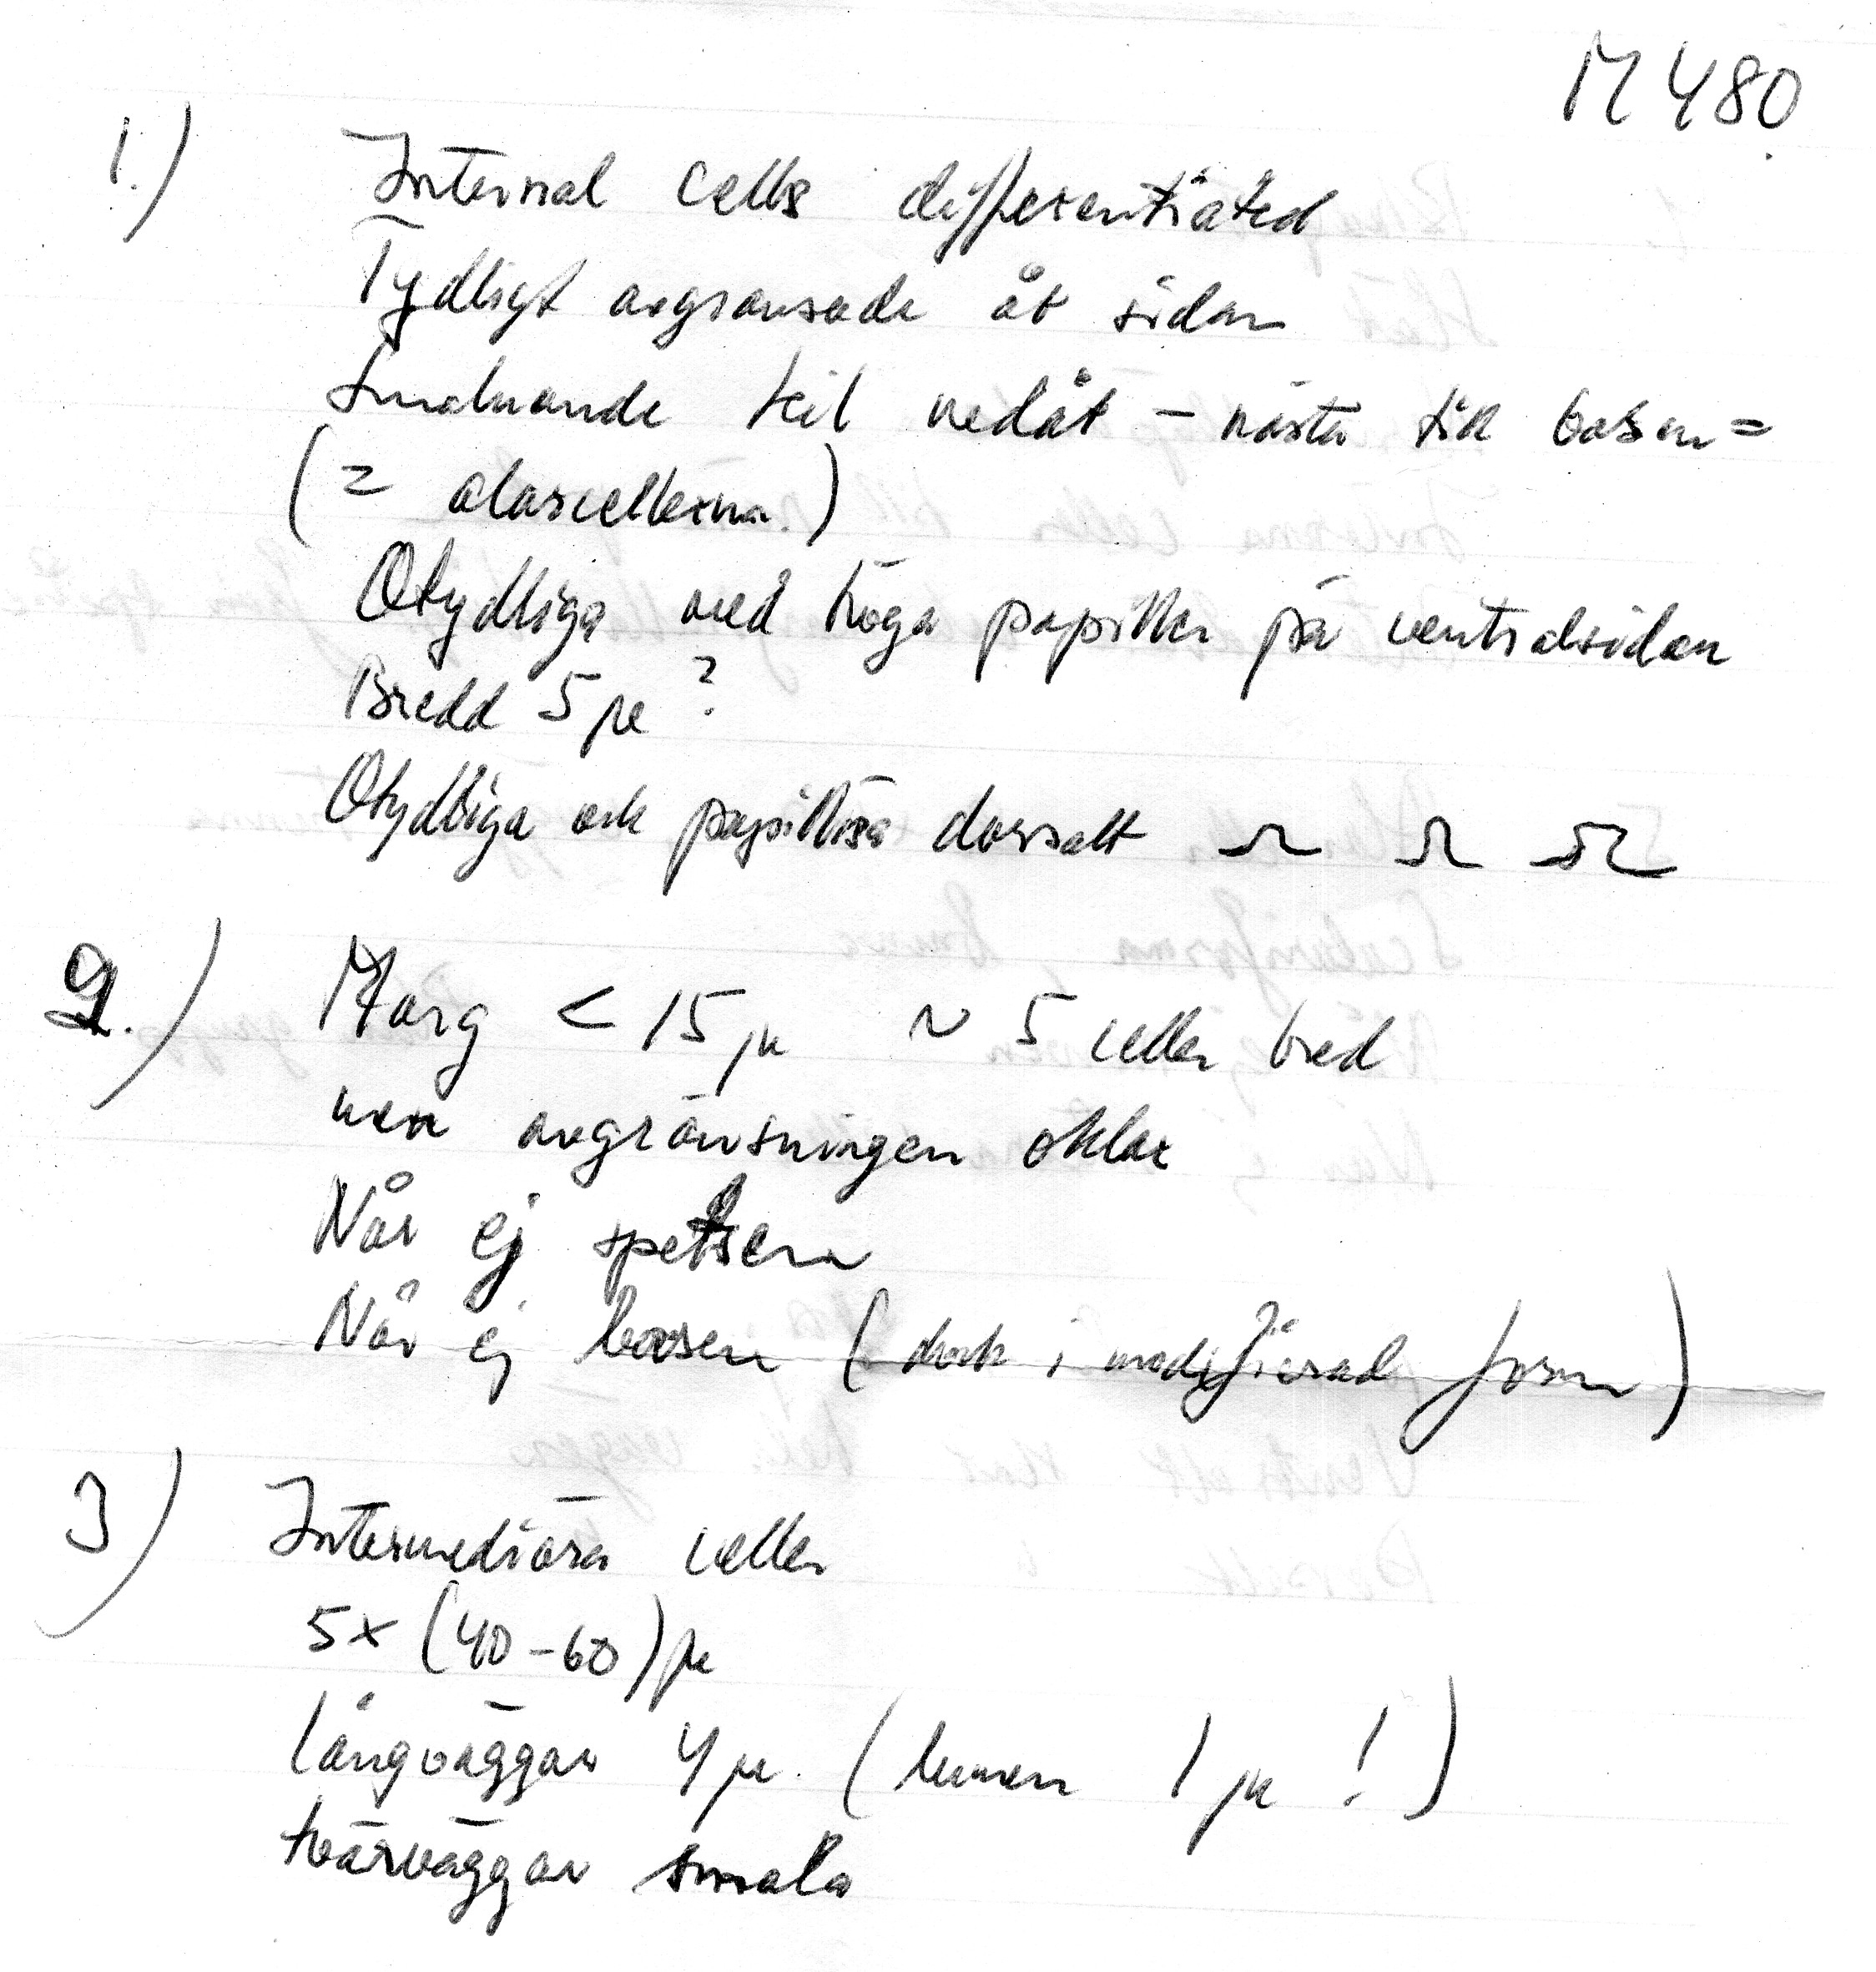 M 480
1.) Internal cells differentiated
Tydligt avgränsade åt sidan
Smalnande kil nedåt – nästa till basen =
(= alarcellerna.)
Otydliga med höga papiller på ventralsidan
Bredd 5 μ ?
Otydliga och papillösa dorsalt
2.) Marg < 15 μ ~ 5 celler bred
men avgränsningen oklar
Når ej spetsen
Når ej basen (dock i modifierad form)
3) Intermediära celler
5x (40–60) μ
långväggar 4 μ. (lumen 1 μ !)
tvärväggar smala